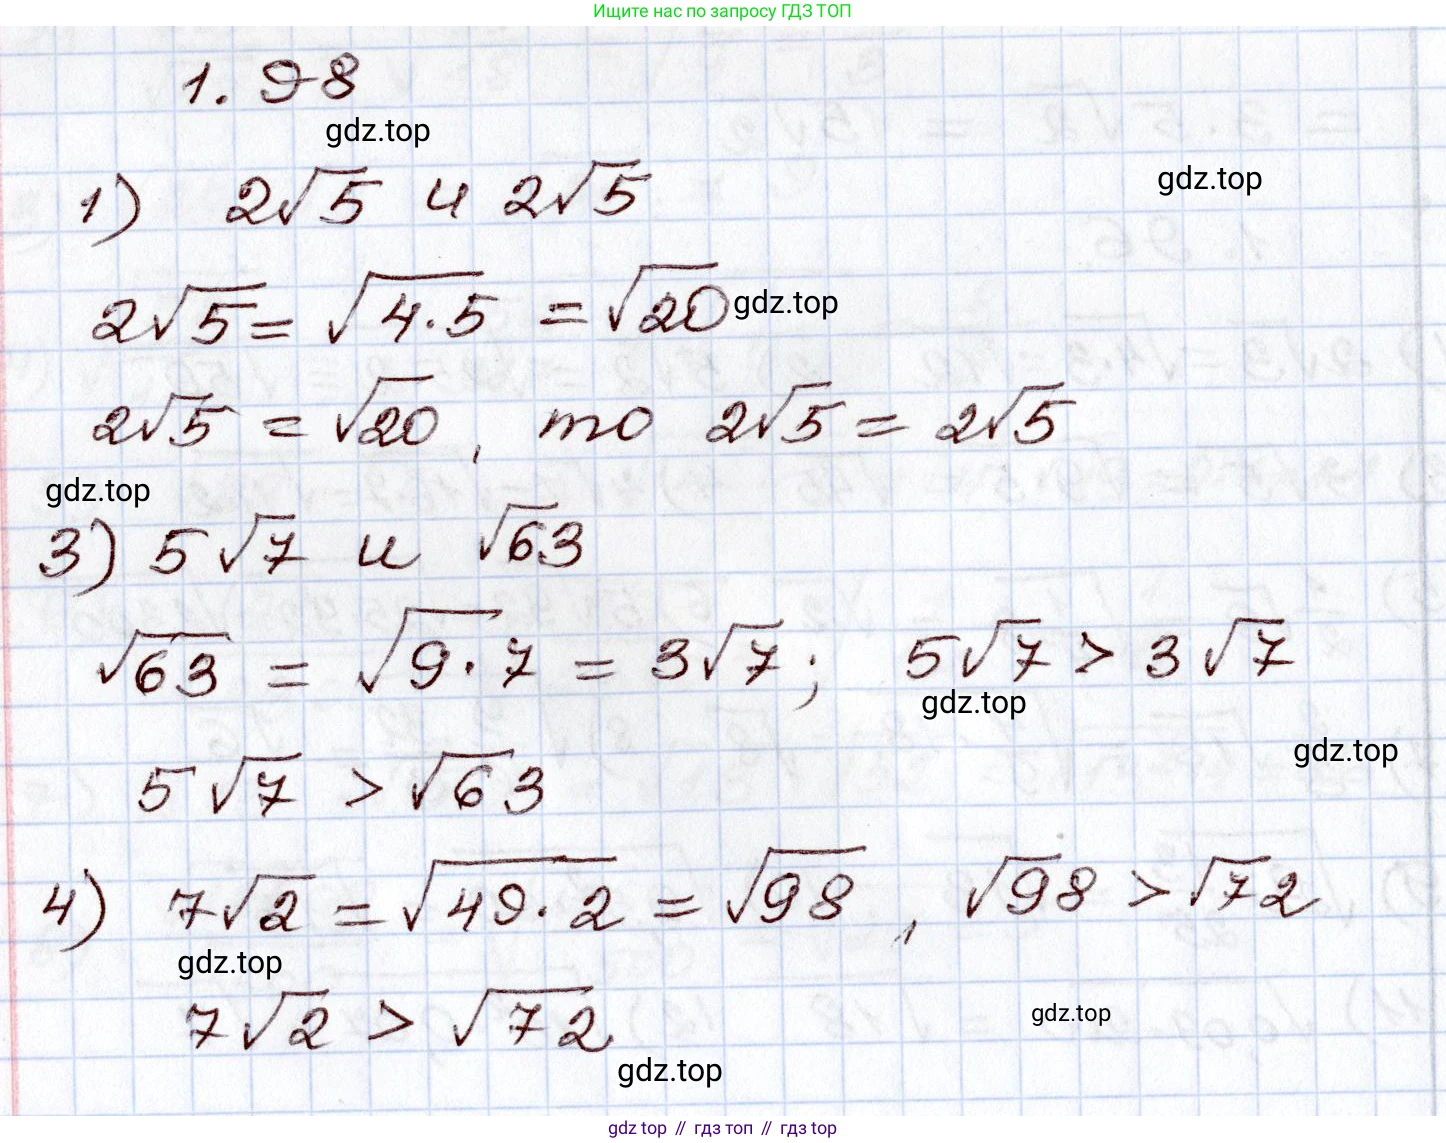 Ищите нас по запросу ГДЗ ТОП
1. 98
gdz.top
1) 2√5 и 2√5
gdz.top
2√5 = √4·5 = √20
gdz.top
2√5 = √20, то 2√5 = 2√5
gdz.top
3) 5√7 и √63
√63 = √9·7 = 3√7; 5√7 > 3√7
gdz.top
gdz.top
5√7 > √63
4) 7√2 = √49·2 = √98, √98 > √72
gdz.top
7√2 > √72
gdz.top
gdz.top
gdz top // гдз топ // гдз top